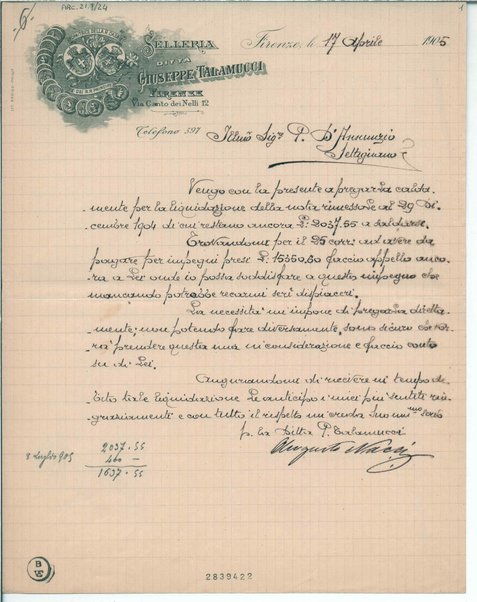 ARC. 21.8/24
1
SELLERIA
DITTA
GIUSEPPE TALAMUCCI
FIRENZE
Via Canto dei Nelli 12
Telefono 597
Firenze, li 17 Aprile 1905
Illmo Sigr G. D'Annunzio
Settignano
Vengo con la presente a pregarla calda-
mente per la liquidazione della nota rimessole al 29 Di-
cembre 1904 di cui restano ancora L: 2037.55 a saldarsi.
Trovandomi per il 25 corr: ad avere da
pagare per impegni presi L. 15350.80 faccio appello anco-
ra a Lei onde io possa soddisfare a questo impegno che
mancando potrebbe recarmi seri dispiaceri.
La necessità mi impone di pregarla diretta-
mente; non potendo fare diversamente, sono sicuro che vor-
rà prendere questa mia in considerazione e faccio conto
su di Lei.
Augurandomi di ricevere in tempo de-
bito tale liquidazione Le anticipo i miei più sentiti rin-
graziamenti e con tutto il rispetto mi creda Suo
p. la Ditta G. Talamucci
Augusto
8 Luglio 905
2037.55
400 -
1637.55
B
VS
2839422